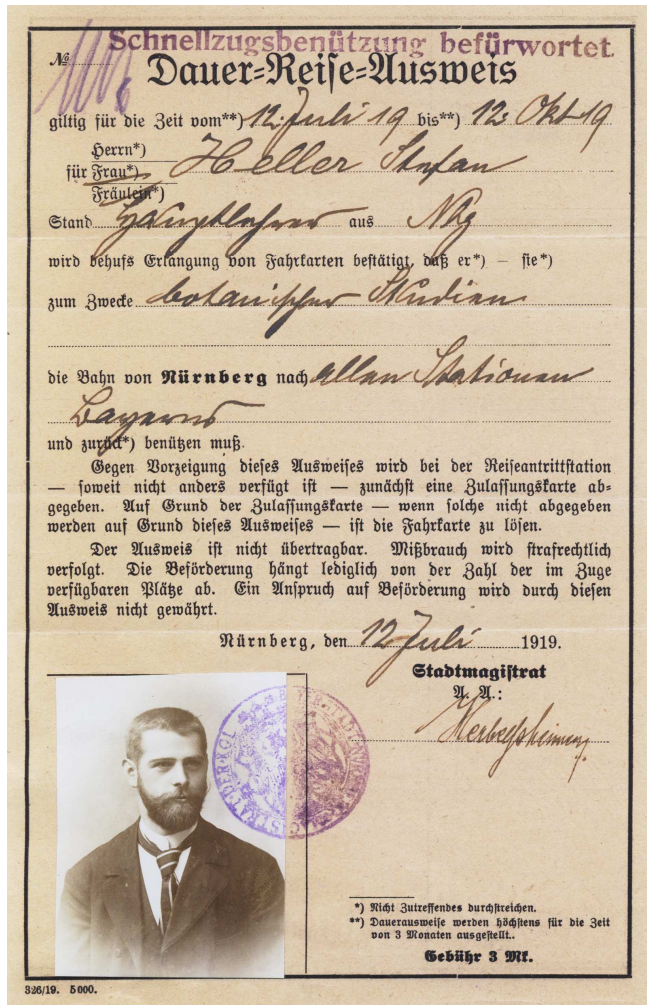 Schnellzugsbenützung befürwortet.
No
Dauer-Reise-Ausweis
giltig für die Zeit vom**) 12. Juli 19 bis**) 12. Okt 19
Herrn*)
für Frau*) Heller Stefan
Fräulein*)
Stand Hauptlehrer aus Nbg
wird behufs Erlangung von Fahrkarten bestätigt, daß er*) – sie*)
zum Zwecke botanischer Studien
die Bahn von Nürnberg nach allen Stationen
Bayerns
und zurück*) benützen muß.
Gegen Vorzeigung dieses Ausweises wird bei der Reiseantrittstation
— soweit nicht anders verfügt ist — zunächst eine Zulassungskarte ab-
gegeben. Auf Grund der Zulassungskarte — wenn solche nicht abgegeben
werden auf Grund dieses Ausweises — ist die Fahrkarte zu lösen.
Der Ausweis ist nicht übertragbar. Mißbrauch wird strafrechtlich
verfolgt. Die Beförderung hängt lediglich von der Zahl der im Zuge
verfügbaren Plätze ab. Ein Anspruch auf Beförderung wird durch diesen
Ausweis nicht gewährt.
Nürnberg, den 12. Juli 1919.
Stadtmagistrat
A. A.:
*) Nicht Zutreffendes durchstreichen.
**) Dauerausweise werden höchstens für die Zeit
von 3 Monaten ausgestellt..
Gebühr 3 Mk.
326/19. 5000.